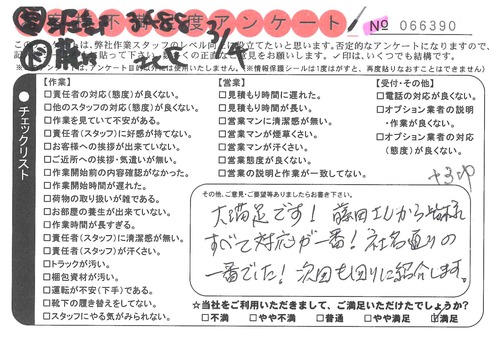 不満度アンケート
No 066390
3/4
このアンケートは、弊社作業スタッフのレベル向上に役立てたいと思います。否定的なアンケートになりますので、
情報保護シールは1度がすと、再度貼りなおすことはできません)
チェックリスト
【作業】
□責任者の対応(態度)が良くない。
□他のスタッフの対応(態度)が良くない。
□作業を見ていて不安がある。
□責任者(スタッフ)に好感が持てない。
□お客様への挨拶が出来ていない。
□ご近所への挨拶・気遣いが無い。
□作業開始前の内容確認がなかった。
□作業開始時間が遅れた。
□荷物の取り扱いが雑である。
□お部屋の養生が出来ていない。
□作業時間が長すぎる。
□責任者(スタッフ)に清潔感が無い。
□責任者(スタッフ)が汗くさい。
□トラックが汚い。
□梱包資材が汚い。
□運転が不安(下手)である。
□靴下の履き替えをしてない。
□スタッフにやる気がみられない。
【営業】
□見積もり時間に遅れた。
□見積もり時間が長い。
□営業マンに清潔感が無い。
□営業マンが煙草くさい。
□営業マンが汗くさい。
□営業態度が良くない。
□営業の説明と作業が一致してない。
【受付・その他】
□電話の対応が良くない。
□オプション業者の説明
・作業が良くない。
□オプション業者の対応
(態度)が良くない。
その他、ご意見・ご要望等ありましたらお書き下さい。
大満足です! 藤田さんから皆様
すべて対応が一番! 社名通りの
一番でした! 次回も周りに紹介します。
☆当社をご利用いただきまして、ご満足いただけたでしょうか?
□不満 □やや不満 □普通 □やや満足 ☑満足